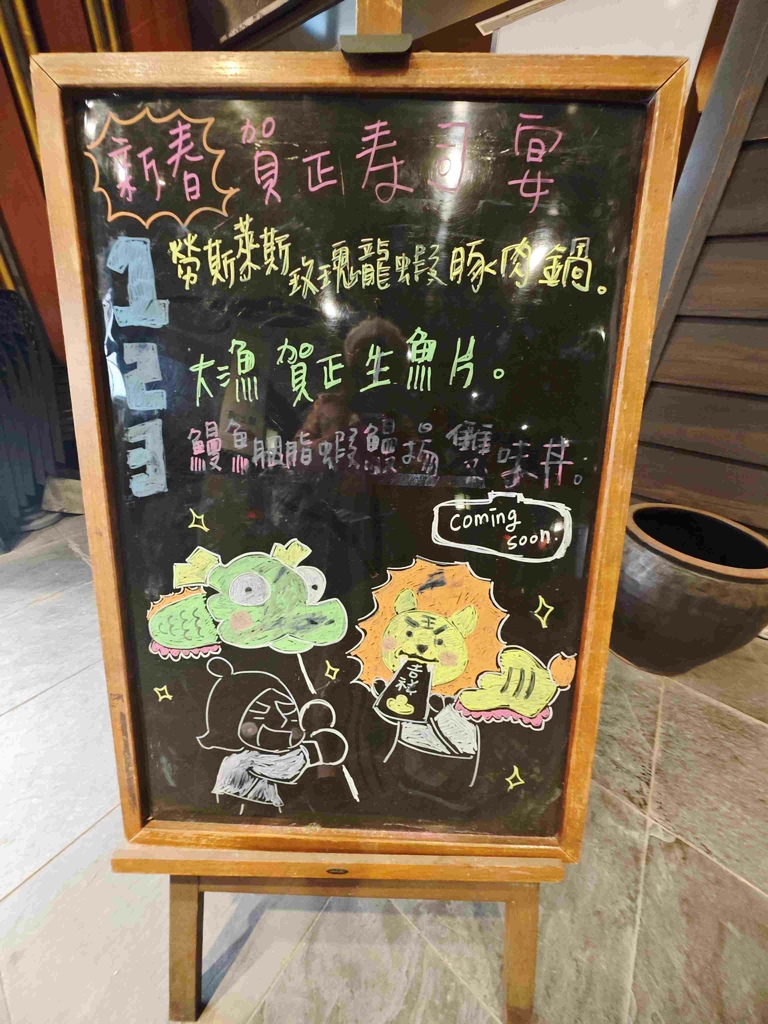 新春 賀正寿司宴
1 勞斯萊斯玫瑰龍蝦豚肉鍋。
2 大漁賀正生魚片。
3 鰻魚胭脂蝦鰻揚雙味丼。
coming
soon.
王
吉祥